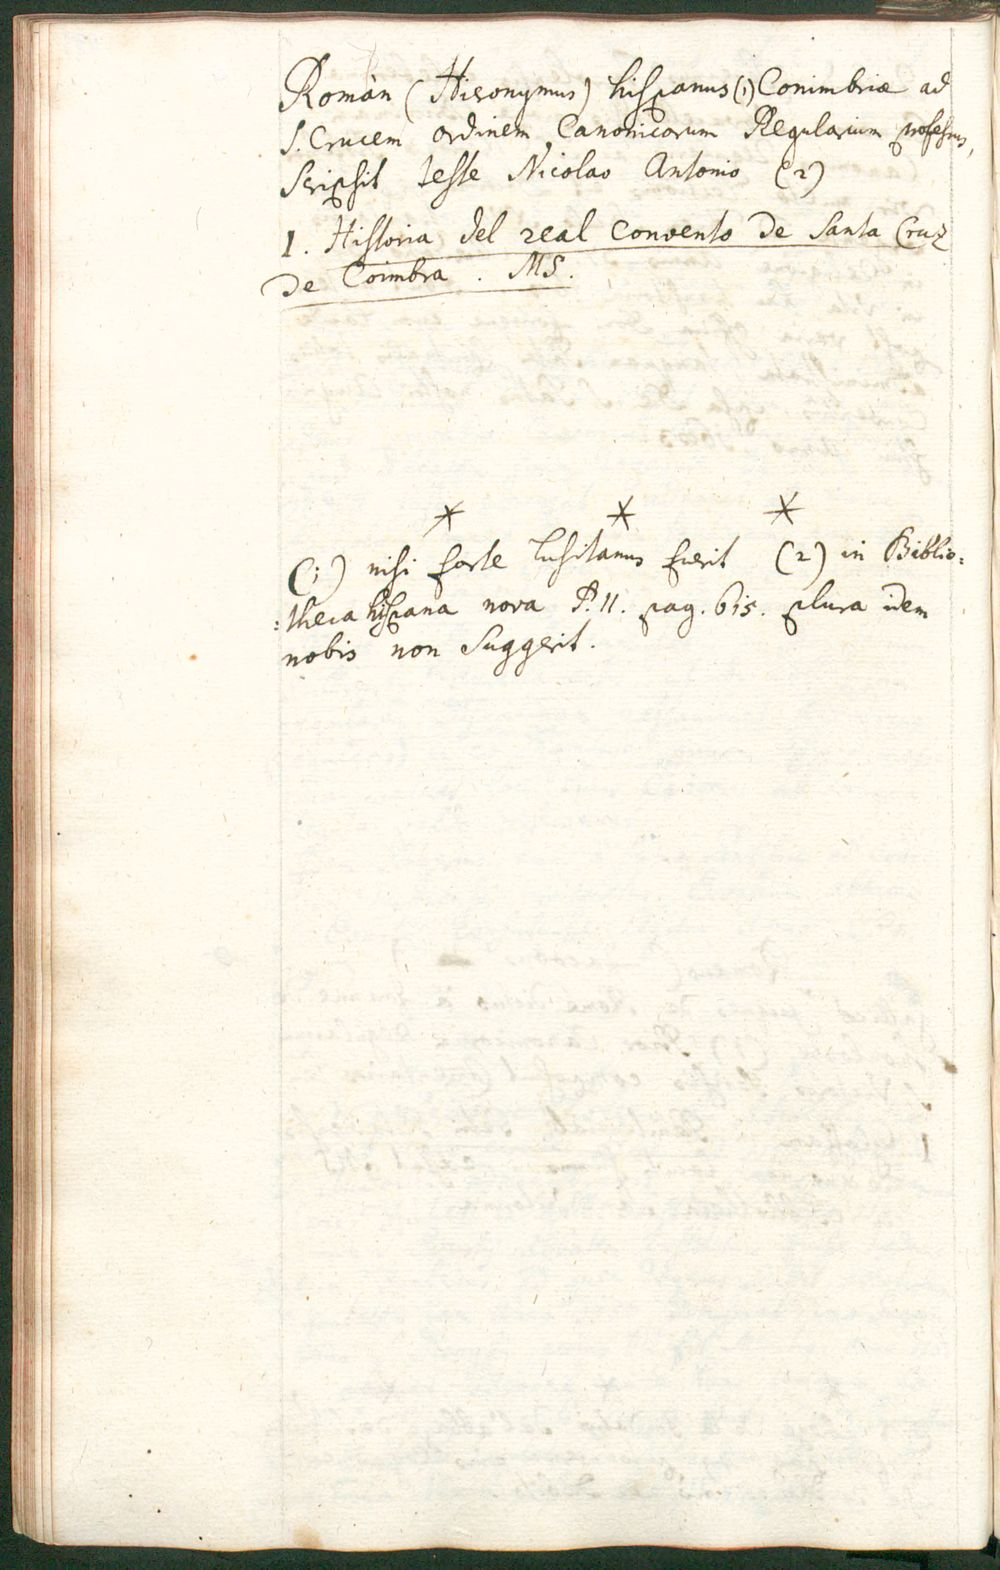 Romàn (Hieronymus) hispanus (1) Conimbriæ ad
S. Crucem ordinem Canonicorum Regularium professus,
Scripsit teste Nicolao Antonio (2)
1. Historia del real convento de Santa Cruz
de Coimbra. MS.
* * *
(1) nisi forte Lusitanus fuerit (2) in Biblio=
=theca hispana nova P. 11. pag. 615. plura idem
nobis non Suggerit.